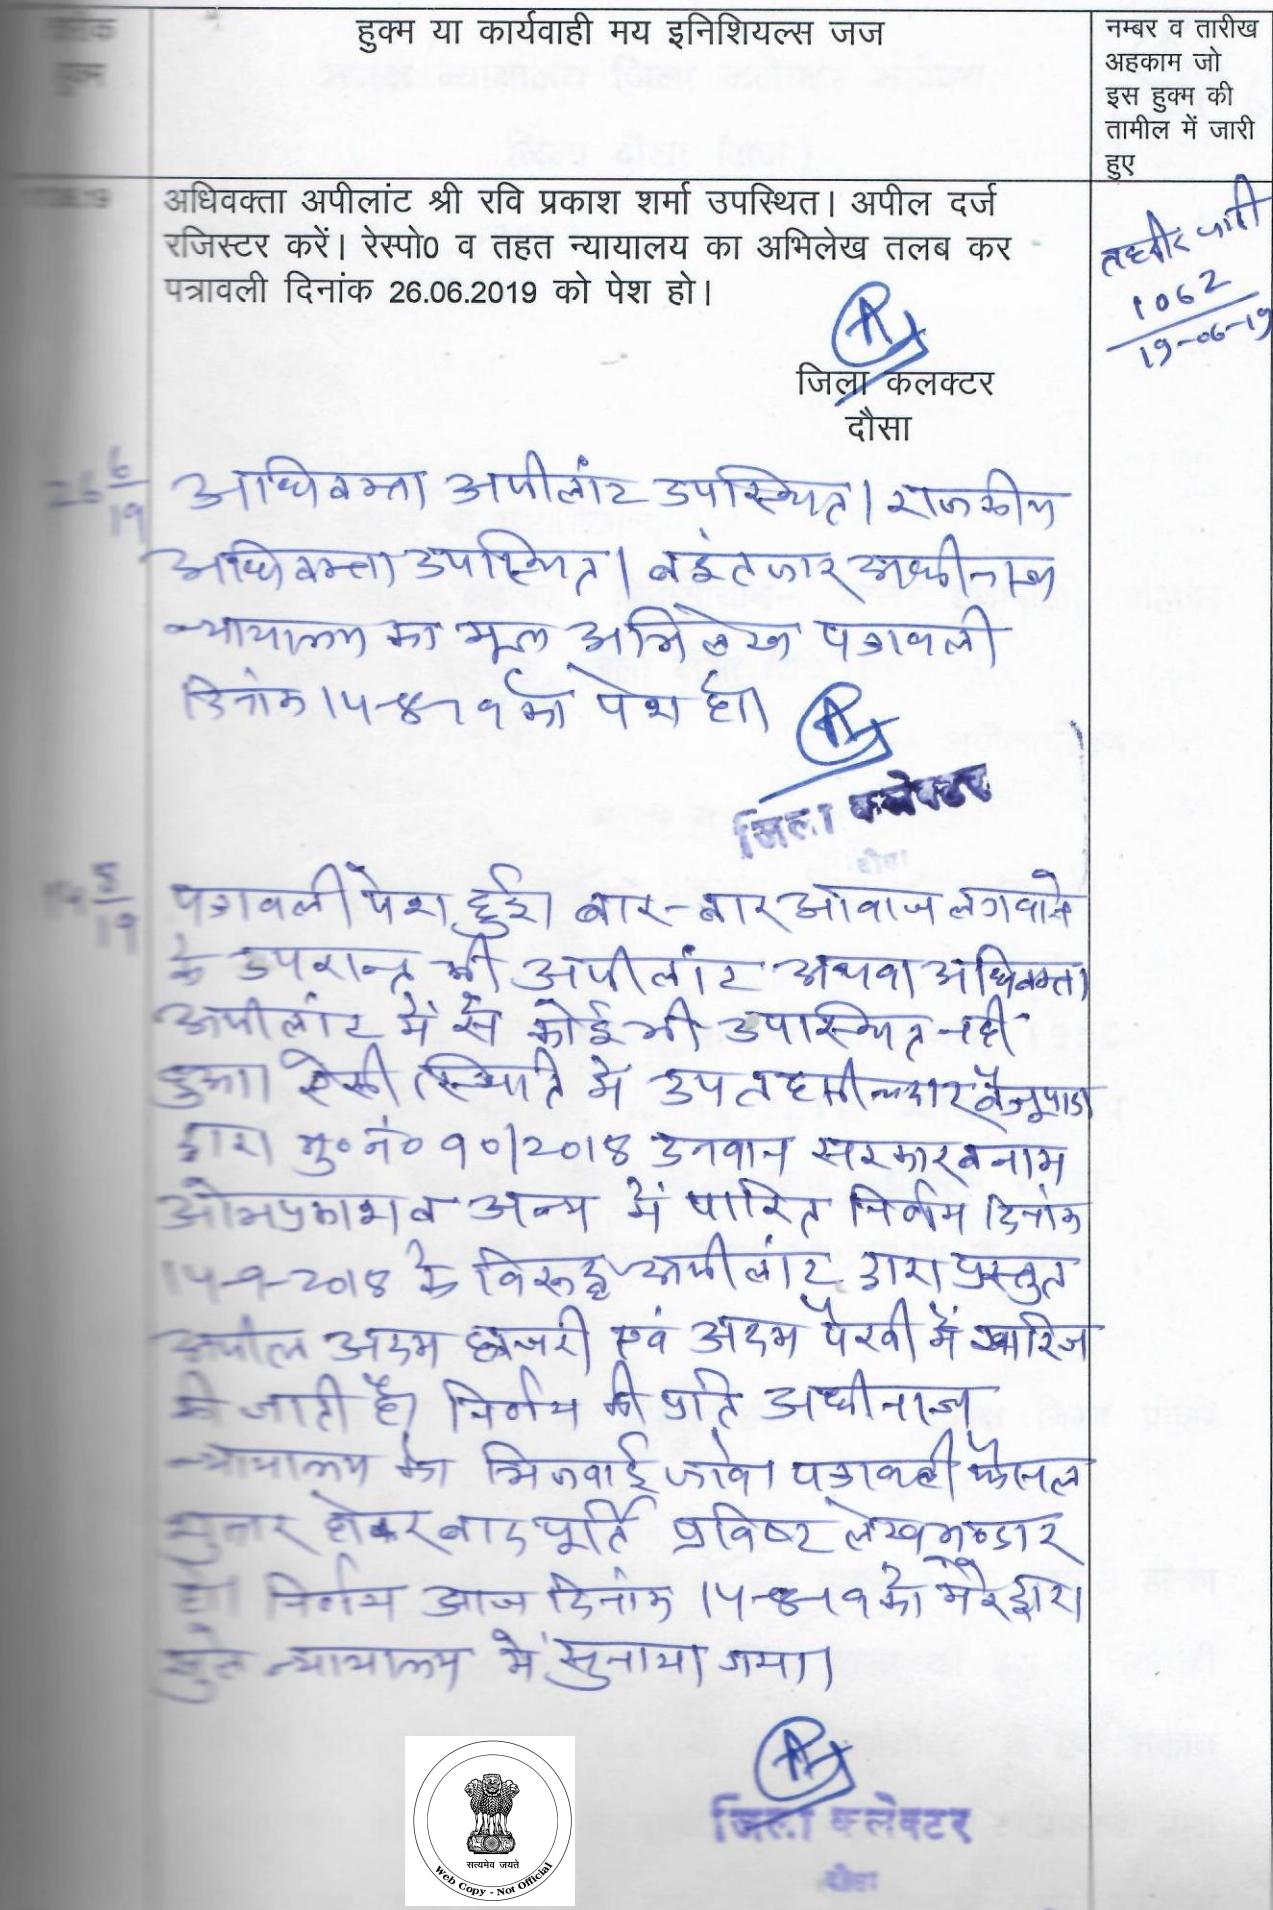 हुक्म
हुक्म या कार्यवाही मय इनिशियल्स जज
नम्बर व तारीख
अहकाम जो
इस हुक्म की
तामील में जारी
हुए
अधिवक्ता अपीलांट श्री रवि प्रकाश शर्मा उपस्थित। अपील दर्ज
रजिस्टर करें। रेस्पो0 व तहत न्यायालय का अभिलेख तलब कर
पत्रावली दिनांक 26.06.2019 को पेश हो।
जारी
1062
19-06-19
जिला कलक्टर
दौसा
26 6/19
अधिवक्ता अपीलांट उपस्थित। राजकीय
अधिवक्ता उपस्थित। बइंतजार अधीनस्थ
न्यायालय का मूल अभिलेख पत्रावली
दिनांक 14-8-19 को पेश हो।
जिला कलेक्टर
दौसा
14 8/19
पत्रावली पेश हुई। बार-बार आवाज लगवाने
के उपरान्त भी अपीलांट अथवा अधिवक्ता
अपीलांट में से कोई भी उपस्थित नही
हुआ। ऐसी स्थिति मे उप तहसीलदार बैजूपाडा
द्वारा मु० नं० 90/2018 उनवान सरकार बनाम
ओमप्रकाश व अन्य में पारित निर्णय दिनांक
14-9-2018 के विरूद्ध अपीलांट द्वारा प्रस्तुत
अपील अदम हाजरी एवं अदम पैरवी में खारिज
की जाती है। निर्णय की प्रति अधीनस्थ
न्यायालय को भिजवाई जावे। पत्रावली फैसल
शुमार होकर बाद पूर्ति प्रविष्ट लेखभण्डार
हो। निर्णय आज दिनांक 14-8-19 को मेरे द्वारा
खुले न्यायालय मे सुनाया गया।
जिला कलेक्टर
दौसा
सत्यमेव जयते
Web Copy - Not Official